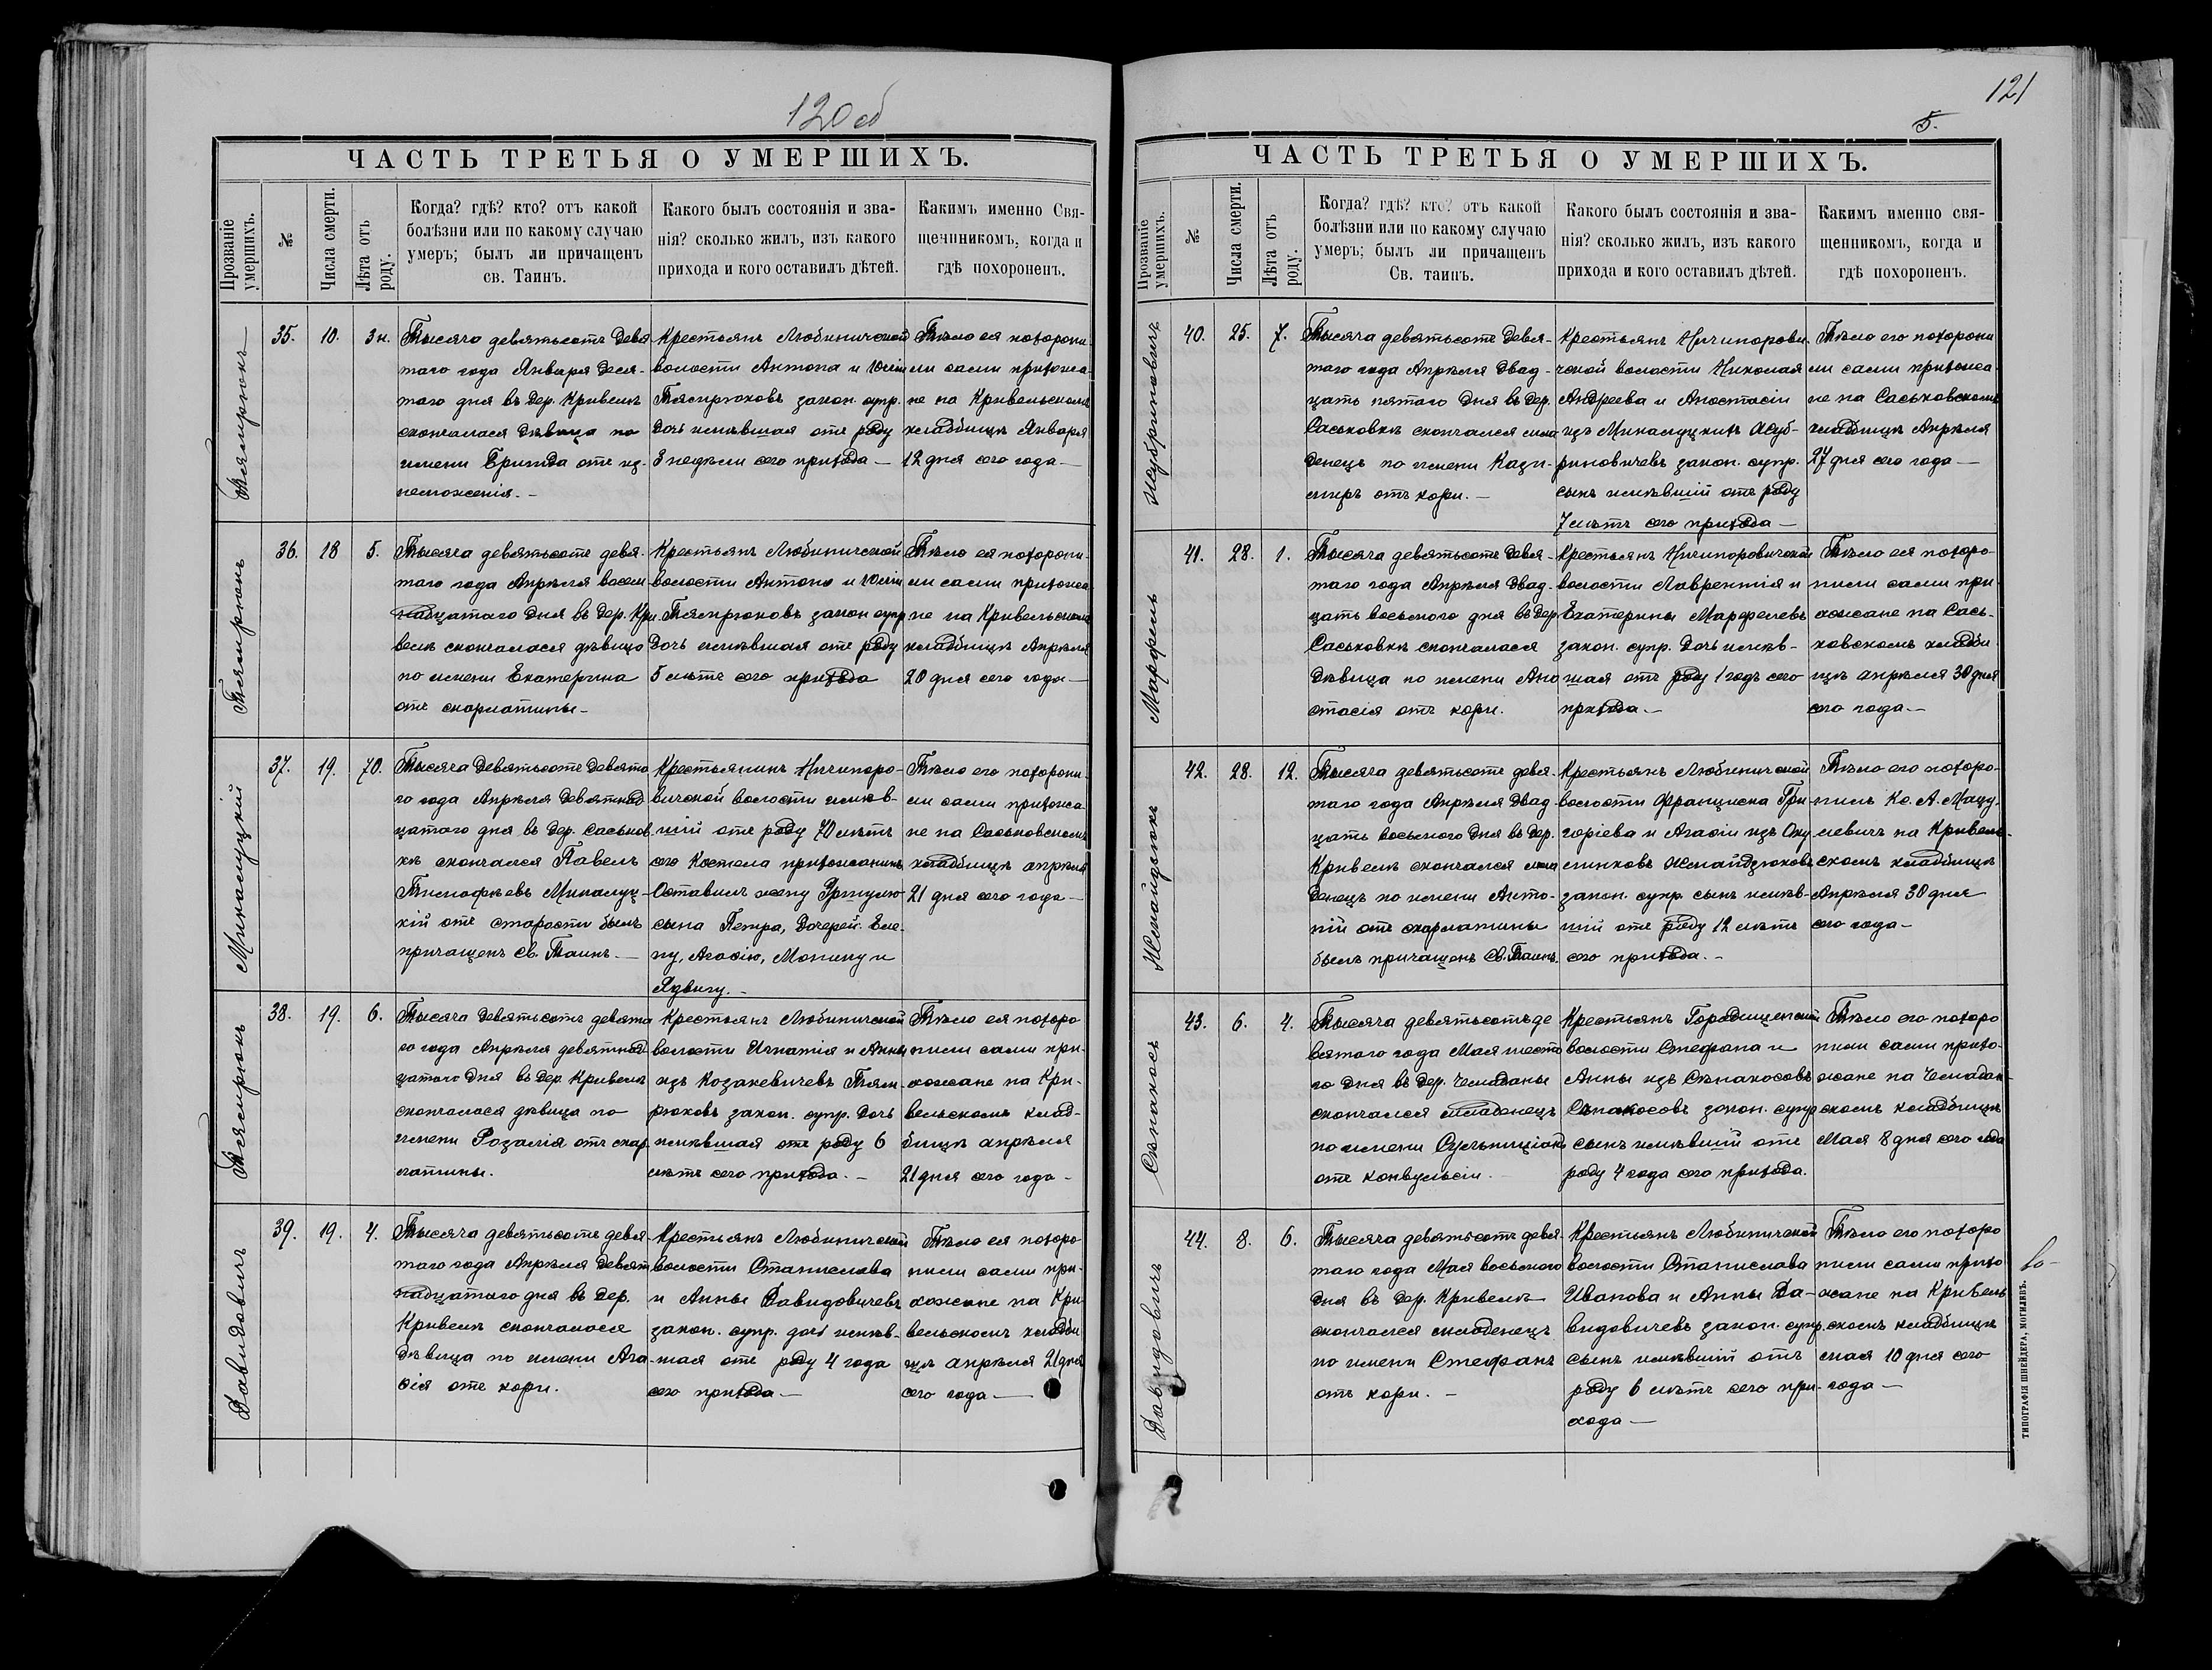 120 об
ЧАСТЬ ТРЕТЬЯ О УМЕРШИХЪ.
Прозваніе умершихъ.
№
Числа смерти.
Лѣта отъ роду.
Когда? гдѣ? кто? отъ какой
болѣзни или по какому случаю
умеръ; былъ ли причащенъ
св. Таинъ.
Какого былъ состоянія и зва-
нія? сколько жилъ, изъ какого
прихода и кого оставилъ дѣтей.
Какимъ именно Свя-
щенникомъ, когда и
гдѣ похороненъ.
Тямрюкъ
35.
10.
3 н.
Тысяча девятьсотъ девя-
таго года Января деся-
таго дня въ дер. Кривель
скончалася дѣвица по
имени Бригида отъ из-
неможенія. —
Крестьянъ Любиничской
волости Антона и Юліи
Тямрюковъ закон. супр.
дочь имѣвшая отъ роду
3 недѣли сего прихода —
Тѣло ея похорони-
ли сами прихожа-
не на Кривельскомъ
кладбищѣ Января
12 дня сего года —
Тямрюкъ
36.
18
5.
Тысяча девятьсотъ девя-
таго года Апрѣля восем
надцатаго дня въ дер. Кри
велѣ скончалася дѣвица
по имени Екатерина
отъ скарлатины —
Крестьянъ Любиничской
волости Антона и Юліи
Тямрюковъ закон супр
дочь имѣвшая отъ роду
5 лѣтъ сего прихода
Тѣло ея похорони-
ли сами прихожа
не на Кривельскомъ
кладбищѣ Апрѣля
20 дня сего года —
Миналуцкій
37.
19.
70.
Тысяча девятьсотъ девята
го года Апрѣля девятнад
цатаго дня въ дер. Саськов
кѣ скончался Павелъ
Тимофѣевъ Миналуц-
кій отъ старости былъ
причащенъ Св. Таинъ. —
Крестьянинъ Ничипоро-
вичской волости имѣв-
шій отъ роду 70 лѣтъ
сего Костела прихожанинъ
Оставилъ жену Уршулю
сына Петра, дочерей: Еле-
ну, Агафію, Монику и
Ядвигу. —
Тѣло его похорони-
ли сами прихожа-
не на Саськовскомъ
кладбищѣ апрѣля
21 дня сего года —
Тямрюкъ
38.
19.
6.
Тысяча девятьсотъ девята
го года Апрѣля девятнад
цатаго дня въ дер. Кривелѣ
скончалася дѣвица по
имени Розалія отъ скар-
латины.
Крестьянъ Любиничской
волости Игнатія и Анны
изъ Козакевичевъ Тям-
рюковъ закон. супр. дочь
имѣвшая отъ роду 6
лѣтъ сего прихода. —
Тѣло ея похоро
нили сами при-
хожане на Кри-
вельскомъ клад-
бищѣ апрѣля
21 дня сего года —
Давидовичъ
39.
19.
4.
Тысяча девятьсотъ девя-
таго года Апрѣля девят
надцатаго дня въ дер.
Кривелѣ скончалася
дѣвица по имени Ага
фія отъ кори.
Крестьянъ Любиничской
волости Станислава
и Анны Давидовичевъ
закон. супр. дочь имѣв-
шая отъ роду 4 года
сего прихода —
Тѣло ея похоро
нили сами при-
хожане на Кри
вельскомъ кладби
щѣ апрѣля 21 дня
сего года —
121
5.
ЧАСТЬ ТРЕТЬЯ О УМЕРШИХЪ.
Прозваніе умершихъ.
№
Числа смерти.
Лѣта отъ роду.
Когда? гдѣ? кто? отъ какой
болѣзни или по какому случаю
умеръ; былъ ли причащенъ
Св. таинъ.
Какого былъ состоянія и зва-
нія? сколько жилъ, изъ какого
прихода и кого оставилъ дѣтей.
Какимъ именно свя-
щенникомъ, когда и
гдѣ похороненъ.
40.
25.
7.
Тысяча девятьсотъ девя-
таго года Апрѣля двад-
цать пятаго дня въ дер.
Саськовкѣ скончался мла
денецъ по имени Кази-
миръ отъ кори. —
Крестьянъ Ничипорови
чской волости Николая
Андреева и Анастасіи
изъ Миналуцкихъ
риновичевъ закон. супр.
сынъ имѣвшій отъ роду
7 лѣтъ сего прихода —
Тѣло его похорони
ли сами прихожа
не на Саськовскомъ
кладбищѣ Апрѣля
27 дня сего года —
Марфель
41.
28.
1.
Тысяча девятьсотъ девя-
таго года Апрѣля двад-
цать восьмого дня въ дер
Саськовкѣ скончалася
дѣвица по имени Ана
стасія отъ кори.
Крестьянъ Ничипоровичской
волости Лаврентія и
Екатерины Марфелевъ
закон. супр. дочь имѣв-
шая отъ роду 1 годъ сего
прихода —
Тѣло ея похоро-
нили сами при-
хожане на Сась-
ковскомъ кладби
щѣ апрѣля 30 дня
сего года —
Жмайдзюкъ
42.
28.
12.
Тысяча девятьсотъ девя-
таго года Апрѣля двад
цать восьмого дня въ дер.
Кривелѣ скончался мла
денецъ по имени Анто-
ній отъ скарлатины
былъ причащенъ Св. Таинъ.
Крестьянъ Любиничской
волости Франциска Гри
горіева и Агафіи изъ
Жмайдзюковъ
закон. супр. сынъ имѣв-
шій отъ роду 12 лѣтъ
сего прихода. —
Тѣло его похоро-
нилъ Кс. А. Мацу-
левичъ на Кривель-
скомъ кладбищѣ
Апрѣля 30 дня
сего года —
Сѣнакосъ
43.
6.
4.
Тысяча девятьсотъ де
вятаго года Мая шеста
го дня въ дер. Чемаданы
скончался младенецъ
по имени
отъ конвульсіи.
Крестьянъ Городищенской
волости Стефана и
Анны изъ Сѣнакосовъ
Сѣнакосовъ закон. супр
сынъ имѣвшій отъ
роду 4 года сего прихода.
Тѣло его похоро
нили сами прихо-
жане на Чемадан-
скомъ кладбищѣ
Мая 8 дня сего года
Давидовичъ
44.
8.
6.
Тысяча девятьсотъ девя-
таго года Мая восьмого
дня въ дер. Кривелѣ
скончался младенецъ
по имени Стефанъ
отъ кори. —
Крестьянъ Любиничской
волости Станислава
Иванова и Анны Да-
видовичевъ закон. супр.
сынъ имѣвшій отъ
роду 6 лѣтъ сего при-
хода —
Тѣло его похоро
нили сами прихо
жане на Кривель
скомъ кладбищѣ
мая 10 дня сего
года —
ТИПОГРАФІЯ ШНЕЙДЕРА, МОГИЛЕВЪ.